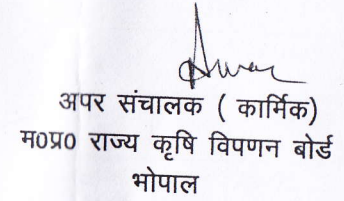 अपर संचालक ( कार्मिक)
म०प्र० राज्य कृषि विपणन बोर्ड
भोपाल